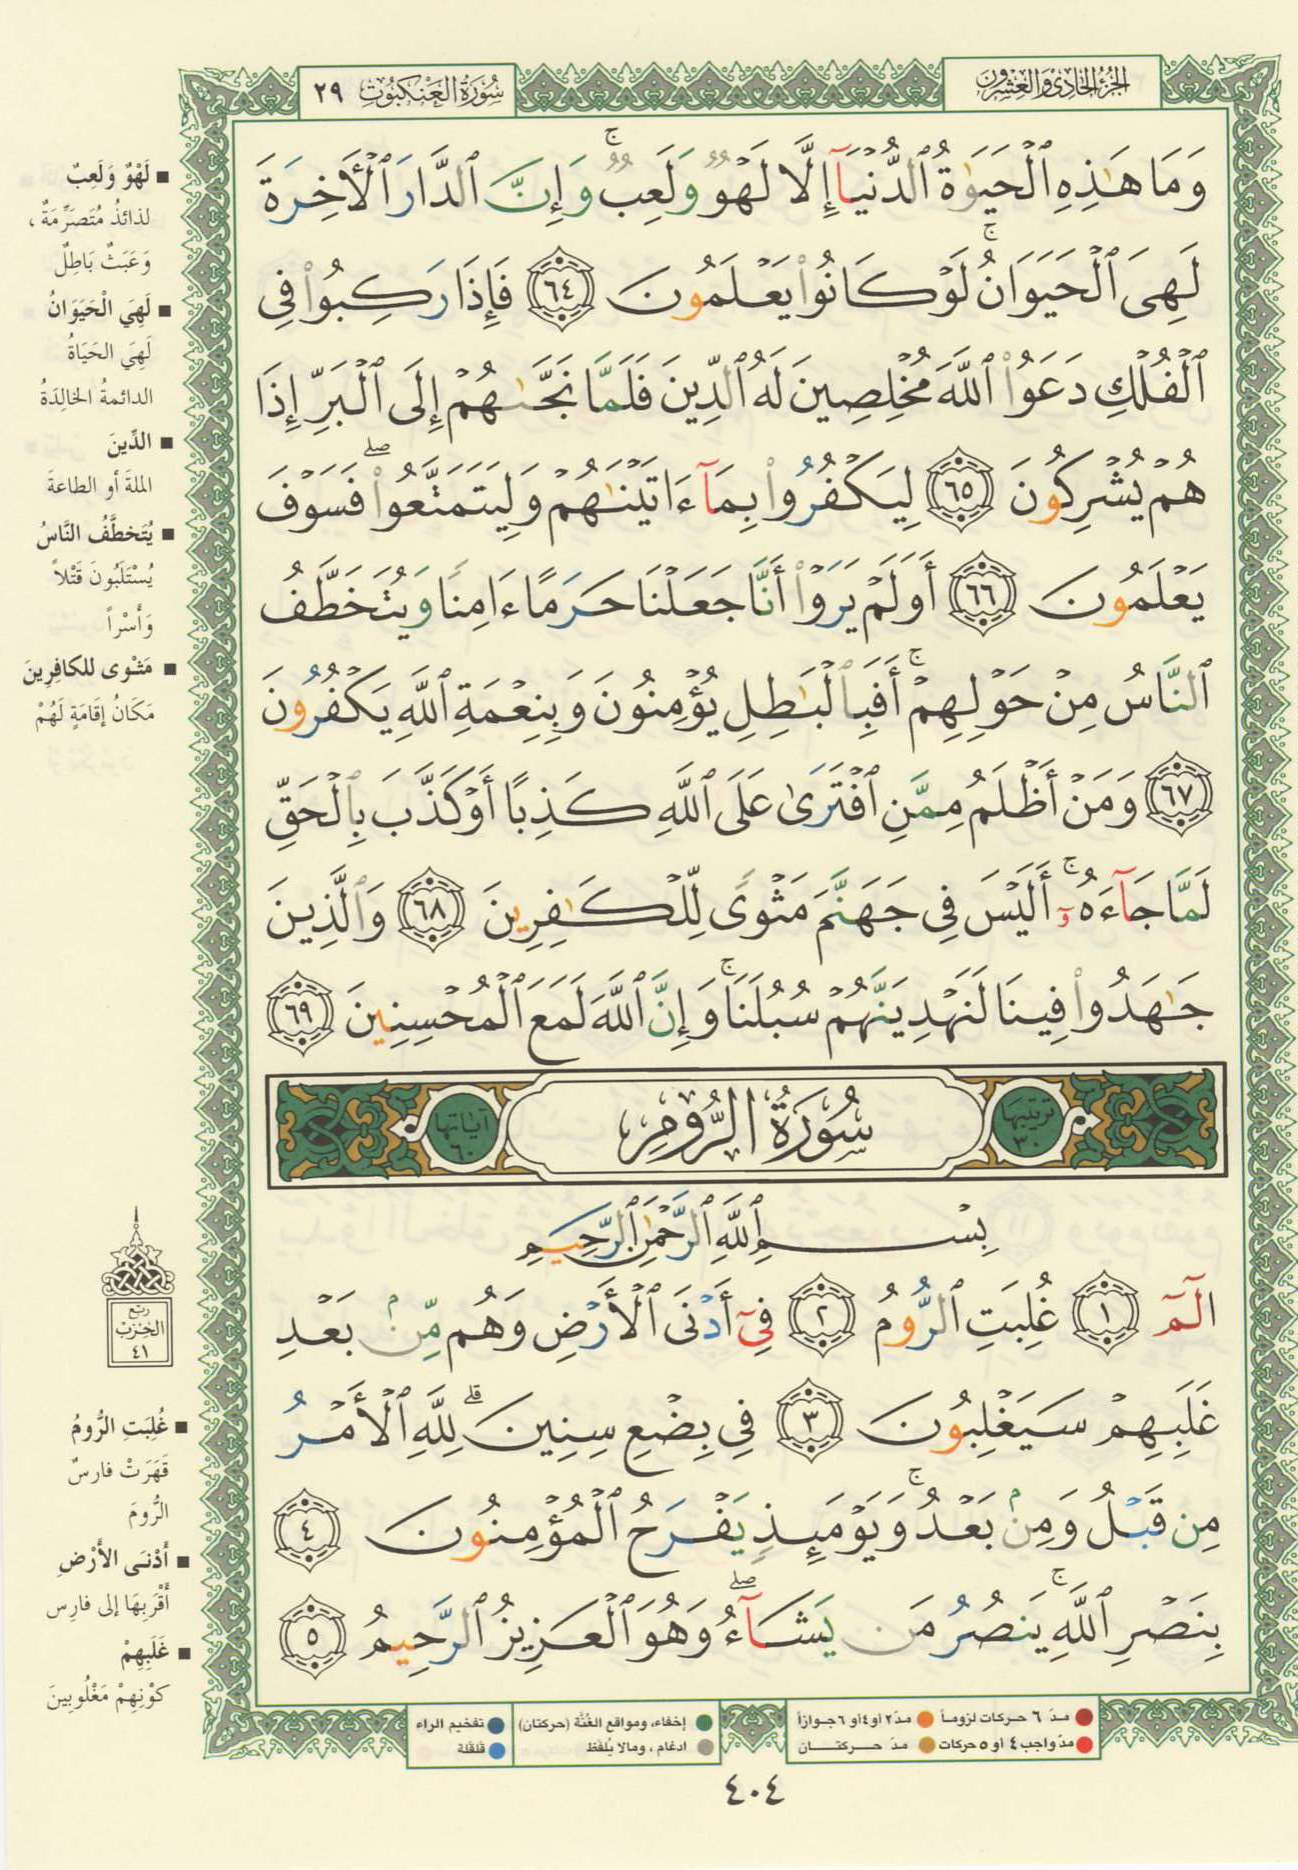 الجزء الحادي والعشرون
سورة العنكبوت ٢٩
وَمَا هَٰذِهِ ٱلْحَيَوٰةُ ٱلدُّنْيَآ إِلَّا لَهْوٌ وَلَعِبٌ ۚ وَإِنَّ ٱلدَّارَ ٱلْأَخِرَةَ
لَهِىَ ٱلْحَيَوَانُ ۚ لَوْ كَانُوا۟ يَعْلَمُونَ ٦٤ فَإِذَا رَكِبُوا۟ فِى
ٱلْفُلْكِ دَعَوُا۟ ٱللَّهَ مُخْلِصِينَ لَهُ ٱلدِّينَ فَلَمَّا نَجَّىٰهُمْ إِلَى ٱلْبَرِّ إِذَا
هُمْ يُشْرِكُونَ ٦٥ لِيَكْفُرُوا۟ بِمَآ ءَاتَيْنَٰهُمْ وَلِيَتَمَتَّعُوا۟ ۖ فَسَوْفَ
يَعْلَمُونَ ٦٦ أَوَلَمْ يَرَوْا۟ أَنَّا جَعَلْنَا حَرَمًا ءَامِنًا وَيُتَخَطَّفُ
ٱلنَّاسُ مِنْ حَوْلِهِمْ ۚ أَفَبِٱلْبَٰطِلِ يُؤْمِنُونَ وَبِنِعْمَةِ ٱللَّهِ يَكْفُرُونَ
٦٧ وَمَنْ أَظْلَمُ مِمَّنِ ٱفْتَرَىٰ عَلَى ٱللَّهِ كَذِبًا أَوْ كَذَّبَ بِٱلْحَقِّ
لَمَّا جَآءَهُۥٓ ۚ أَلَيْسَ فِى جَهَنَّمَ مَثْوًى لِّلْكَٰفِرِينَ ٦٨ وَٱلَّذِينَ
جَٰهَدُوا۟ فِينَا لَنَهْدِيَنَّهُمْ سُبُلَنَا ۚ وَإِنَّ ٱللَّهَ لَمَعَ ٱلْمُحْسِنِينَ ٦٩
ترتيبها ٣٠
سُورَةُ الرُّومِ
آياتها ٦٠
بِسْمِ ٱللَّهِ ٱلرَّحْمَٰنِ ٱلرَّحِيمِ
الٓمٓ ١ غُلِبَتِ ٱلرُّومُ ٢ فِىٓ أَدْنَى ٱلْأَرْضِ وَهُم مِّنۢ بَعْدِ
غَلَبِهِمْ سَيَغْلِبُونَ ٣ فِى بِضْعِ سِنِينَ ۗ لِلَّهِ ٱلْأَمْرُ
مِن قَبْلُ وَمِنۢ بَعْدُ ۚ وَيَوْمَئِذٍ يَفْرَحُ ٱلْمُؤْمِنُونَ ٤
بِنَصْرِ ٱللَّهِ ۚ يَنصُرُ مَن يَشَآءُ ۖ وَهُوَ ٱلْعَزِيزُ ٱلرَّحِيمُ ٥
■ لَهْوٌ وَلَعِبٌ
لذائذُ مُتَصَرِّمَةٌ،
وَعَبَثٌ بَاطِلٌ
■ لَهِيَ الْحَيَوَانُ
لَهِيَ الحَيَاةُ
الدائمةُ الخالِدَةُ
■ الدِّينَ
الملةَ أو الطاعةَ
■ يُتَخطَّفُ النَّاسُ
يُسْتَلَبُونَ قَتْلاً
وَأَسْراً
■ مَثْوى للكافِرِينَ
مَكَانُ إقَامَةٍ لَهُمْ
ربع
الحزب
٤١
■ غُلِبَتِ الرُّومُ
قَهَرَتْ فارسٌ
الرُّومَ
■ أَدْنَى الأَرْضِ
أَقْرَبِهَا إلى فارِس
■ غَلَبِهِمْ
كَوْنِهِمْ مَغْلُوبِينَ
مدّ ٦ حركات لزوماً مدّ ٢ أو ٤ أو ٦ جوازاً
مدّ واجب ٤ أو ٥ حركات مدّ حركتان
إخفاء، ومواقع الغُنَّة (حركتان) تفخيم الراء
ادغام، وما لا يُلفَظ قلقلة
٤٠٤